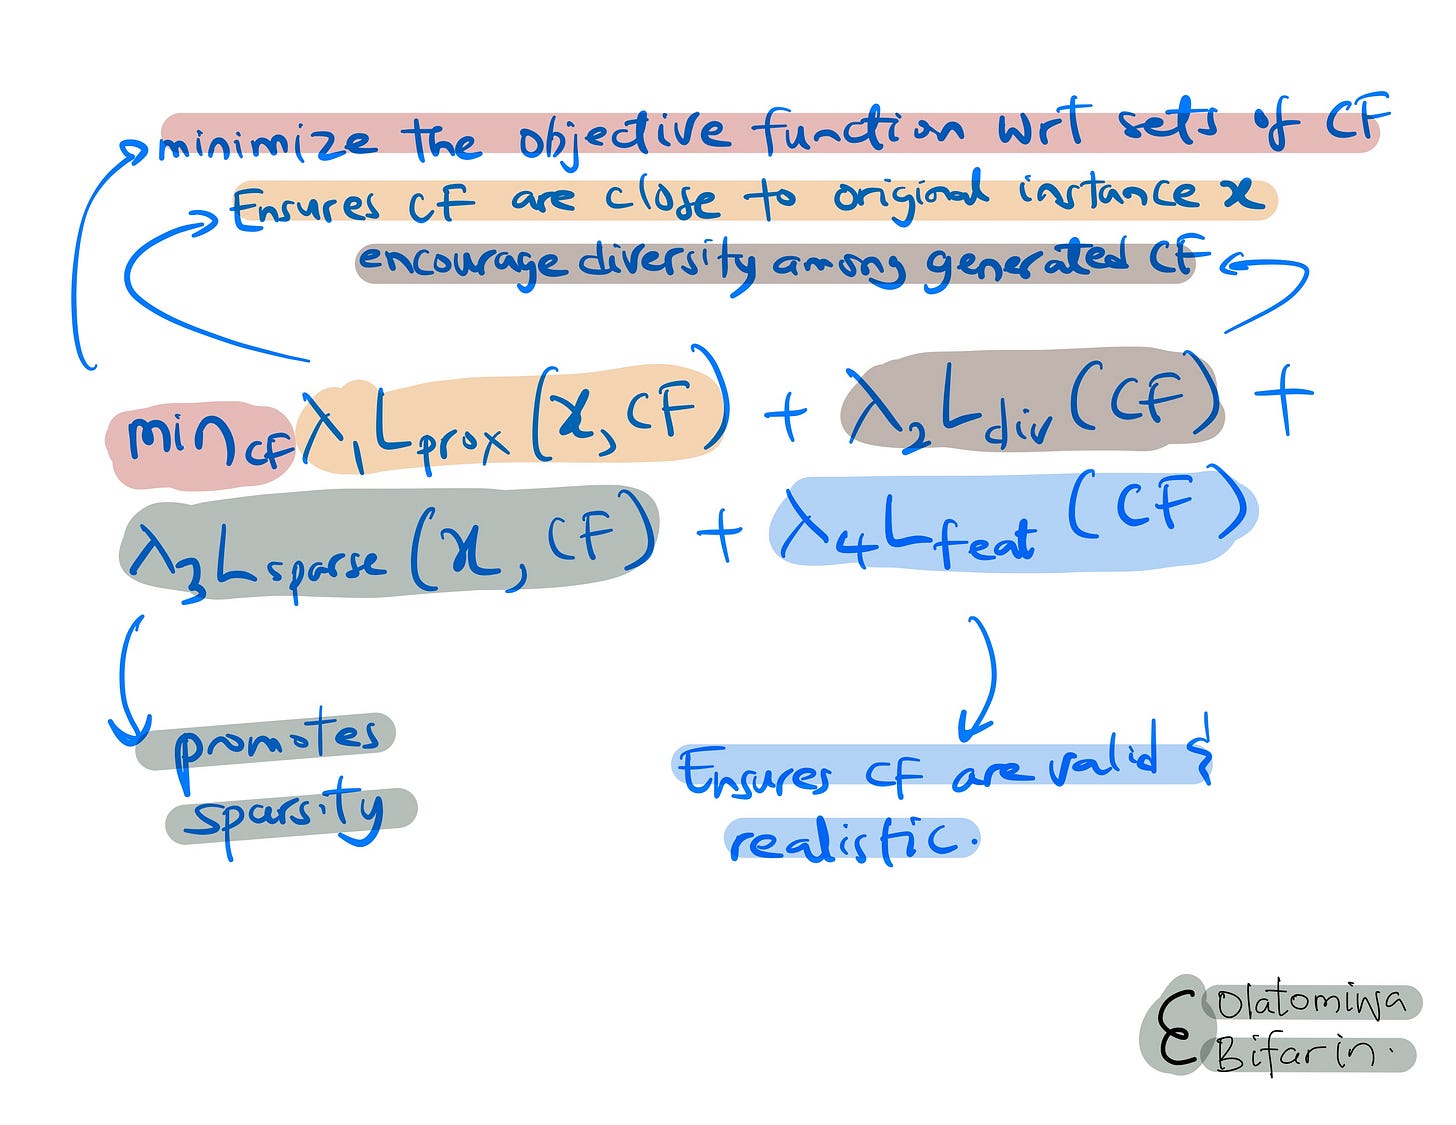 minimize the objective function wrt sets of CF
Ensures CF are close to original instance x
encourage diversity among generated CF
min_CF λ₁L_prox (x, CF) + λ₂L_div (CF) +
λ₃L_sparse (x, CF) + λ₄L_feat (CF)
promotes
sparsity
Ensures CF are valid &
realistic.
Ɛ Olatomiwa
Bifarin.